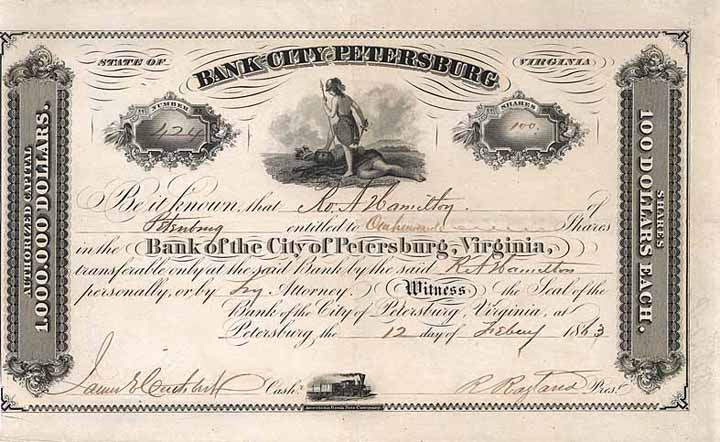 BANK OF THE CITY OF PETERSBURG
STATE OF VIRGINIA
NUMBER
424
SHARES
100.
AUTHORIZED CAPITAL
1.000.000 DOLLARS.
SHARES
100 DOLLARS EACH.
Be it known, that Ro. A Hamilton of
Petersburg entitled to One hundred Shares
in the Bank of the City of Petersburg, Virginia,
transferable only at the said Bank by the said R A Hamilton
personally, or by his Attorney. Witness the Seal of the
Bank of the City of Petersburg, Virginia, at
Petersburg, the 12 day of Feby 1863
Cashr. R Ragland Prest.
American Bank Note Company